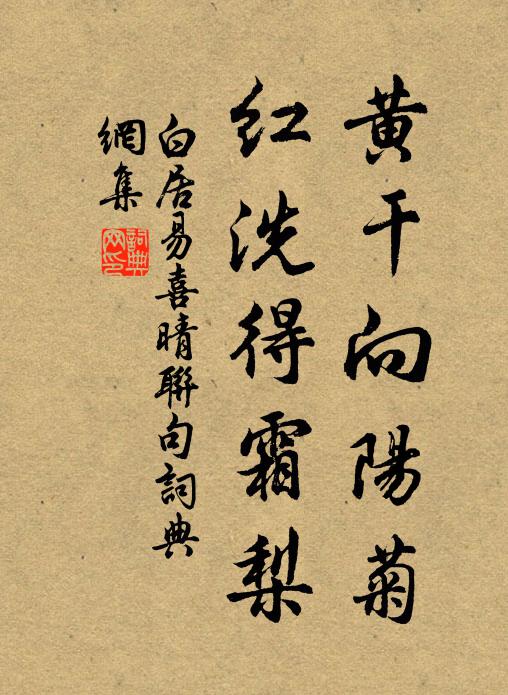 黄干向陽菊
红洗得霜梨
白居易喜晴聯句詞典
網集
詞典網印